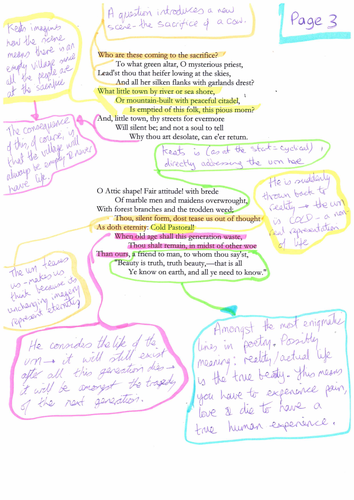 Page 3
A question introduces a new
scene - the sacrifice of a cow.
Keats imagines
how the scene
means there is an
empty village since
all the people are
at the sacrifice
Who are these coming to the sacrifice?
To what green altar, O mysterious priest,
Lead'st thou that heifer lowing at the skies,
And all her silken flanks with garlands drest?
What little town by river or sea shore,
Or mountain-built with peaceful citadel,
Is emptied of this folk, this pious morn?
And, little town, thy streets for evermore
Will silent be; and not a soul to tell
Why thou art desolate, can e'er return.
The consequence
of this, of course, is
that the village will
always be empty & never
have life.
Keats is (as at the start = cyclical),
directly addressing the urn here.
O Attic shape! Fair attitude! with brede
Of marble men and maidens overwrought,
With forest branches and the trodden weed;
Thou, silent form, dost tease us out of thought
As doth eternity: Cold Pastoral!
When old age shall this generation waste,
Thou shalt remain, in midst of other woe
Than ours, a friend to man, to whom thou say'st,
"Beauty is truth, truth beauty,—that is all
Ye know on earth, and all ye need to know."
He is suddenly
thrown back to
reality → the urn
is COLD - a non
real representation
of life
The urn teases
us - makes us
think because its
unchanging images
represent eternity
He considers the life of the
urn → it will still exist
after all this generation dies →
it will be amongst the tragedy
of the next generation.
Amongst the most enigmatic
lines in poetry. Possibly
meaning: reality/actual life
is the true beauty. This means
you have to experience pain,
love & die to have a
true human experience.